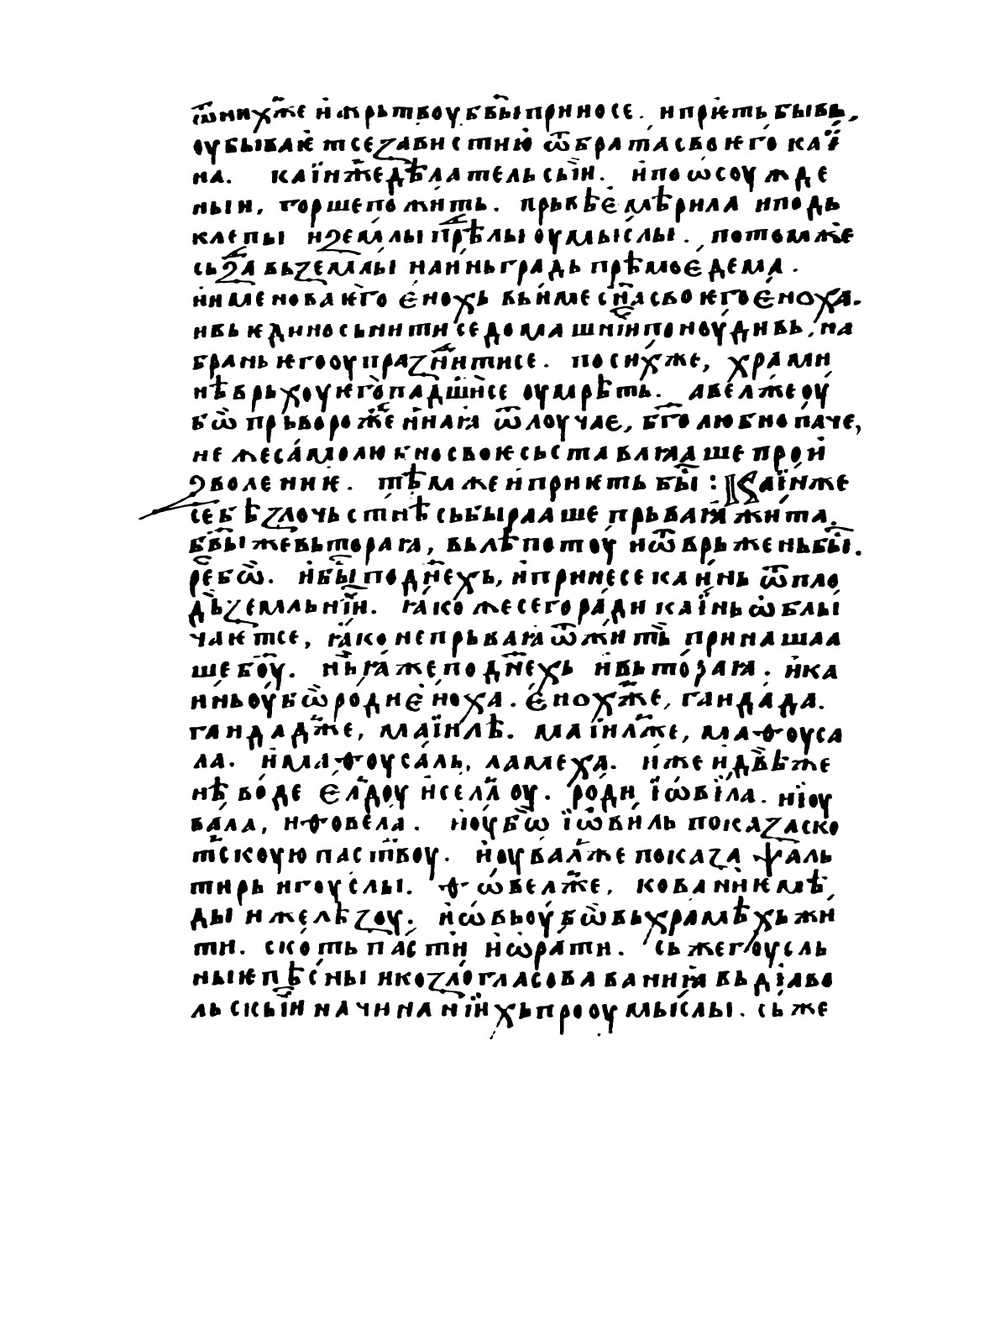 ѿнихже и жрьтвоу бв҃ы приносе. и приѥть бывь,
оубываѥтсе завистию ѿ брата своѥго каї
на. каїнже дѣлатель сы́и. и по ѡсоужде
нии, горше пожить. прьвѣе мѣрила и подь
клепы и землы прѣ́лы оумысли. потомже
сьзда вь земли наинь градь прѣмо едема.
именова ѥго енохь вь име сн҃а своѥго еноха.
и вь ѥдино сьнитисе домашнїи поноудивь, на
брань ѥго оупразнитисе. по сихже, храми
нѣ врьхоу ѥго падшисе оумрѣть. авелже оу
бѡ прьворожен'наꙗ ѿлоучае, бг҃олюбно паче,
неже самолюбно своѥ сьставлꙗше прои
зволениѥ. тѣмже и приѥть бы : Каїнже
себѣ злочьстнѣ сьбыраше прьваꙗ жита.
бв҃ы же втораꙗ, вьлѣпотоу и ѿврьжень бы.
ре бѡ. и бы по днехь, и принесе каинь ѿ пло
дь земльнїи. ꙗко же сего ради каїнь ѡблы
чаѥтсе, ꙗко не прьваꙗ ѿ жить принашаа
ше бо҃у. нь ꙗже по днехь и втораꙗ. и ка
иньоубѡ роди еноха. енохже, гандада.
гандадже, маїилѣ. маїилже, маѳоуса
ла. и маѳоусаль, ламеха. иже и двѣ же
нѣ воде елдоу и селаоу. роди їѡвила. и їоу
вала, и ѳовела. и оубѡ їѡвиль показа ско
тскоую паствоу. и оувалже показа ѱаль
тирь и гоусли. ѳѡвелже, кованиѥ мѣ
ды и желѣзоу. и ѡвь оубѡ вь храмѣхь жи
ти. скоть пасти и ѡрати. сьже гоусль
ныѥ пѣсны и козлогласованиꙗ вь дїаво
льскыи начинанїихь проумысли. сь же